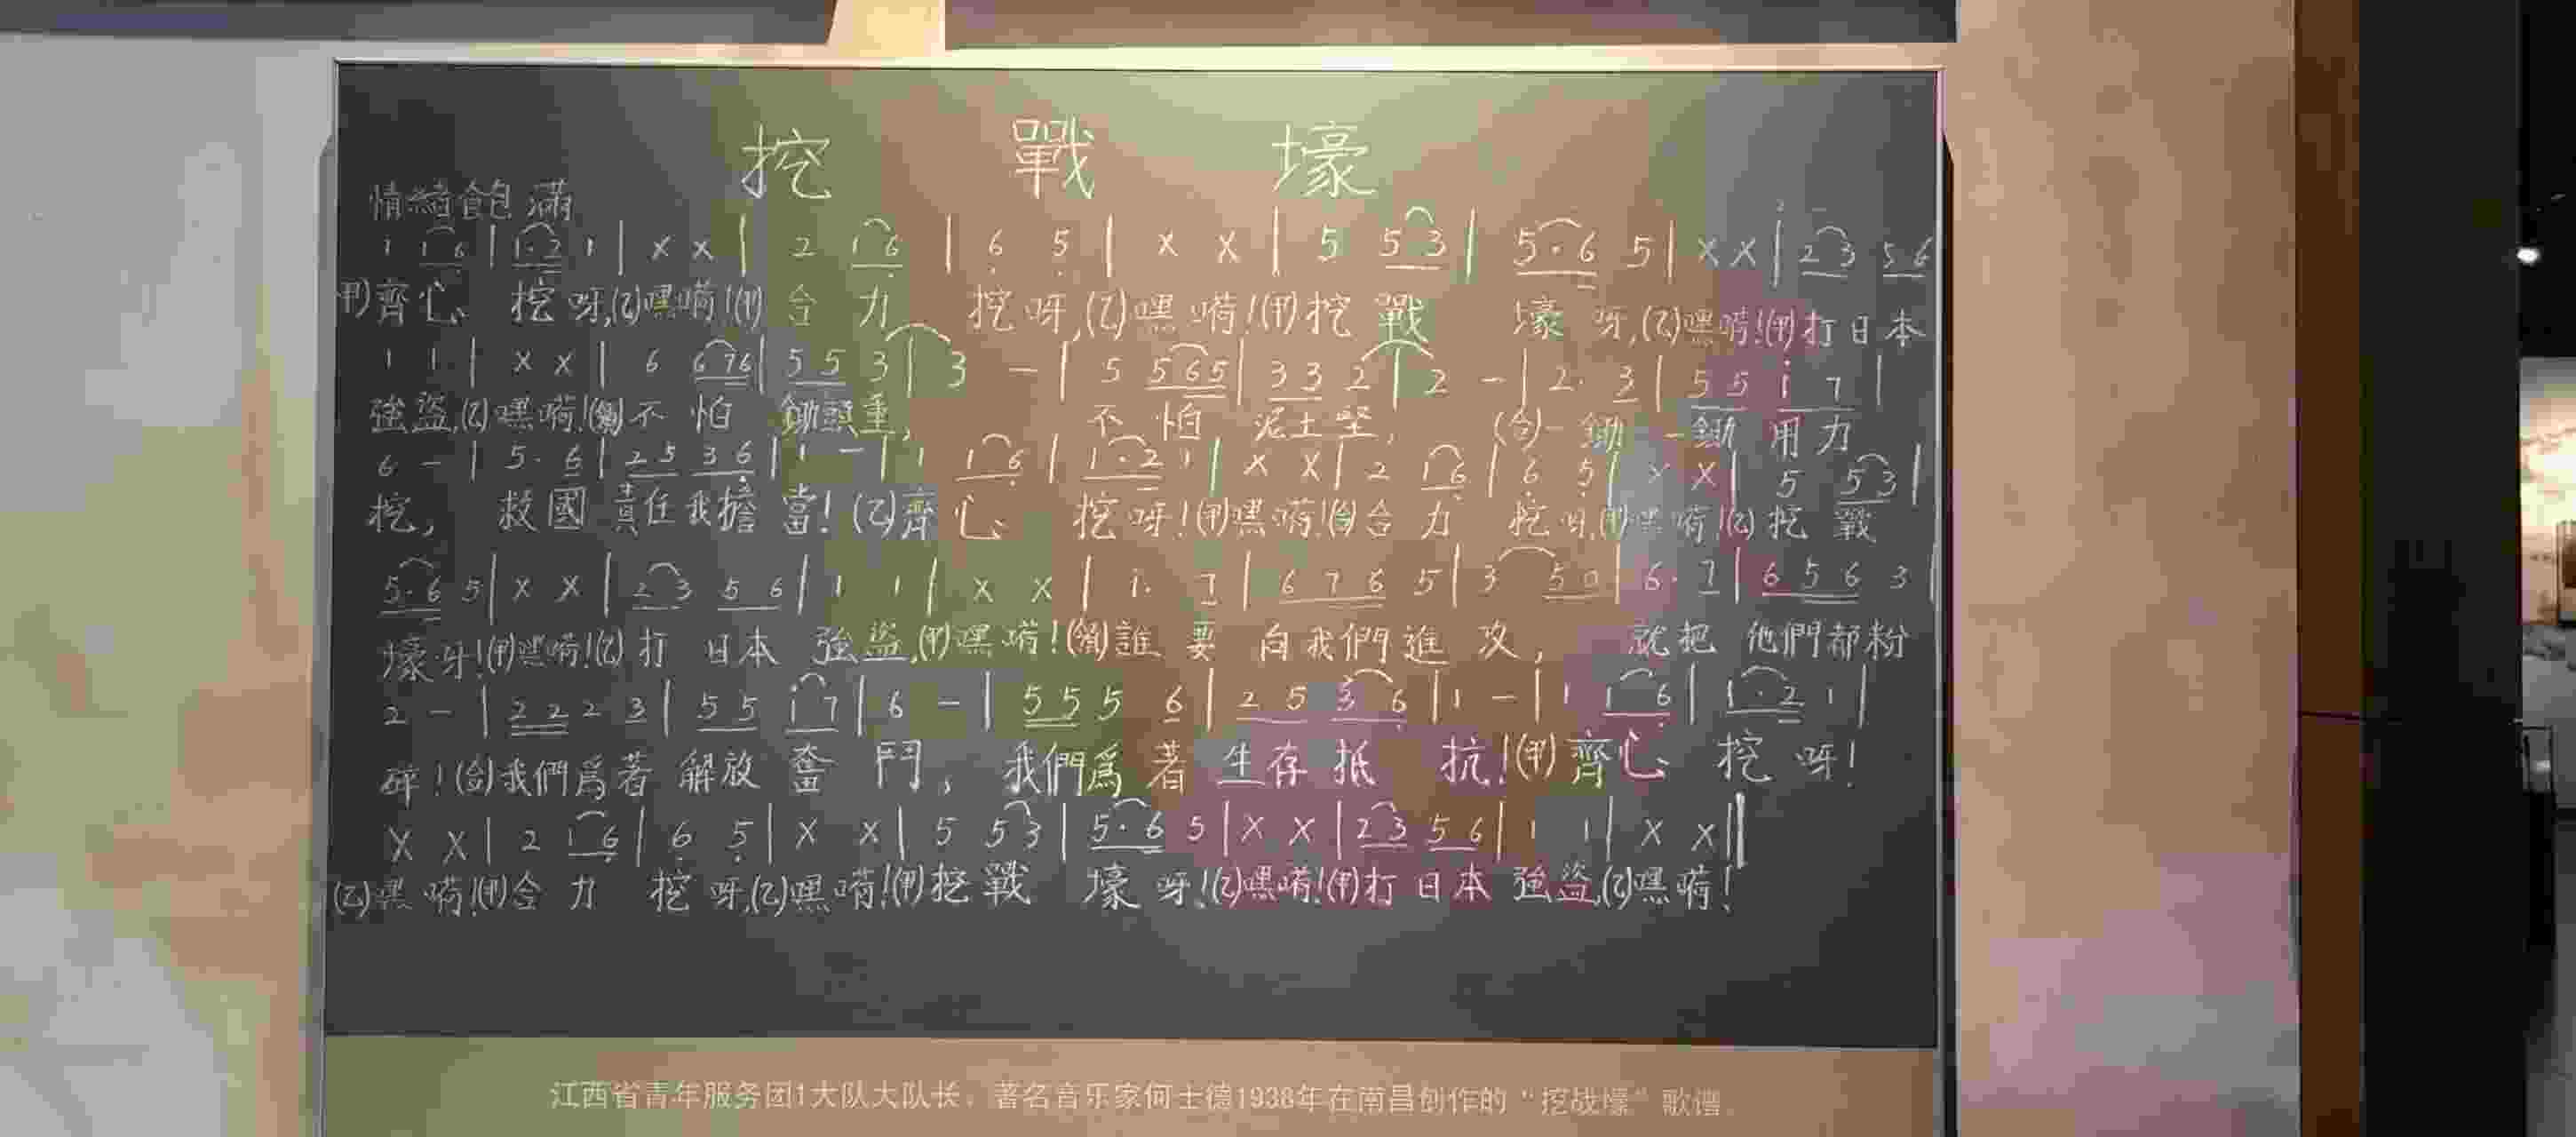 挖 戰 壕
情緒飽滿
1 1 6 | 1·2 1 | X X | 2 1 6 | 6 5 | X X | 5 5 3 | 5·6 5 | X X | 2 3 5 6
甲)齊心 挖呀,(乙)嘿嗬!(甲)合力 挖呀,(乙)嘿嗬!(甲)挖戰 壕呀,(乙)嘿嗬!(甲)打日本
1 1 | X X | 6 6 7 6 | 5 5 3 | 3 - | 5 5 6 5 | 3 3 2 | 2 - | 2· 3 | 5 5 i 7 |
強盜,(乙)嘿嗬!不怕 鋤頭重, 不怕 泥土堅, (合)一鋤 一鋤用力
6 - | 5· 6 | 2 5 3 6 | 1 - | 1 1 6 | 1·2 1 | X X | 2 1 6 | 6 5 | X X | 5 5 3 |
挖, 救國責任我擔當!(乙)齊心 挖呀!(甲)嘿嗬!合力 挖呀,(甲)嘿嗬!(乙)挖戰
5·6 5 | X X | 2 3 5 6 | 1 1 | X X | i· 7 | 6 7 6 5 | 3 5 0 | 6· 7 | 6 5 6 3 |
壕呀!(甲)嘿嗬!(乙)打日本強盜,(甲)嘿嗬!誰要向我們進攻, 就把他們都粉
2 - | 2 2 2 3 | 5 5 i 7 | 6 - | 5 5 5 6 | 2 5 3 6 | 1 - | 1 1 6 | 1·2 1 |
碎!(合)我們爲著解放奮鬥, 我們爲著生存抵抗!(甲)齊心 挖呀!
X X | 2 1 6 | 6 5 | X X | 5 5 3 | 5·6 5 | X X | 2 3 5 6 | 1 1 | X X ‖
(乙)嘿嗬!(甲)合力 挖呀,(乙)嘿嗬!(甲)挖戰 壕呀!(乙)嘿嗬!(甲)打日本強盜,(乙)嘿嗬!
江西省青年服务团1大队大队长,著名音乐家何士德1938年在南昌创作的“挖战壕”歌谱